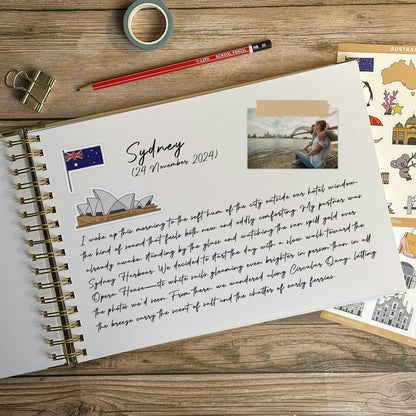 LYRA SCHOOL PENCIL HB
AUSTRALIA
Sydney
(24 November 2024)
I woke up this morning to the soft hum of the city outside our hotel window-
the kind of sound that feels both new and oddly comforting. My partner was
already awake, standing by the glass and watching the sun spill gold over
Sydney Harbour. We decided to start the day with a slow walk toward the
Opera House—its white sails gleaming even brighter in person than in all
the photos we'd seen. From there, we wandered along Circular Quay, letting
the breeze carry the scent of salt and the chatter of early ferries.